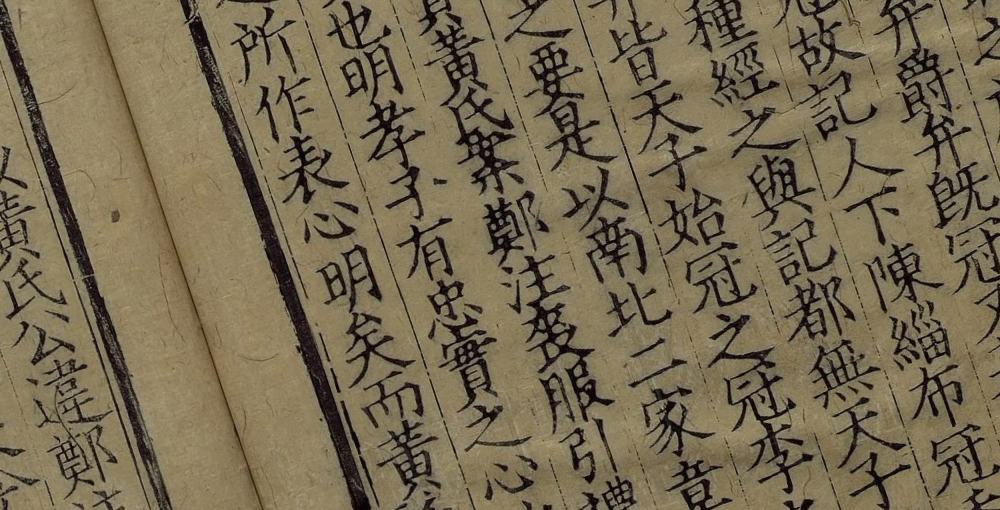 之
弁爵弁既冠
冠故記人下陳緇布冠
種經之與記都無天子
弁皆天子始冠之冠李
之要是以南北二家章
黃氏案鄭注喪服引禮
也明孝子有忠實之心
所作表心明矣而黃
以黃氏公違鄭注